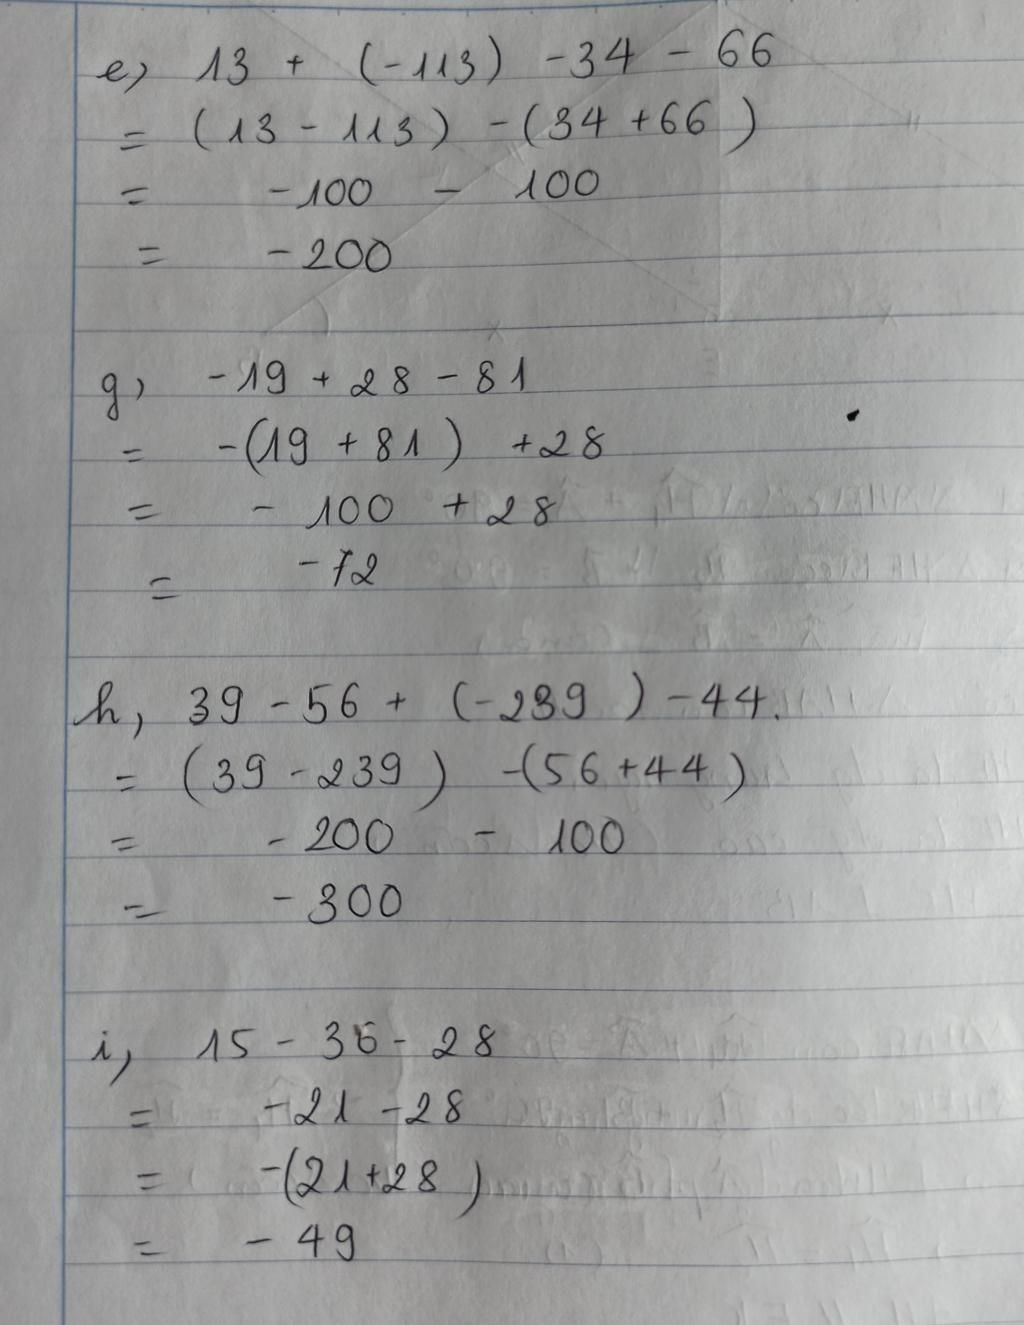 e, 13 + (-113) -34 - 66
= (13 - 113) -(34 +66)
= -100 - 100
= -200
g, -19 + 28 - 81
= -(19 + 81) +28
= - 100 + 28
= -72
h, 39 - 56 + (-239) - 44.
= (39 - 239) -(56+44)
= -200 - 100
= -300
i, 15 - 36 - 28
= -21 -28
= -(21+28)
= - 49